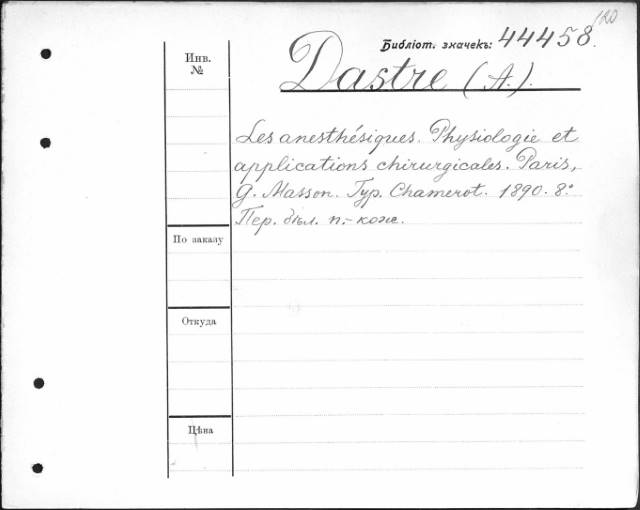 120
Библіот. значекъ: 44458.
Инв.
№
Dastre (A.).
Les anesthésiques. Physiologie et
applications chirurgicales. Paris,
G. Masson. Typ. Chamerot. 1890. 8.°
Пер. бѣл. п.-кож.
По заказу
Откуда
Цѣна